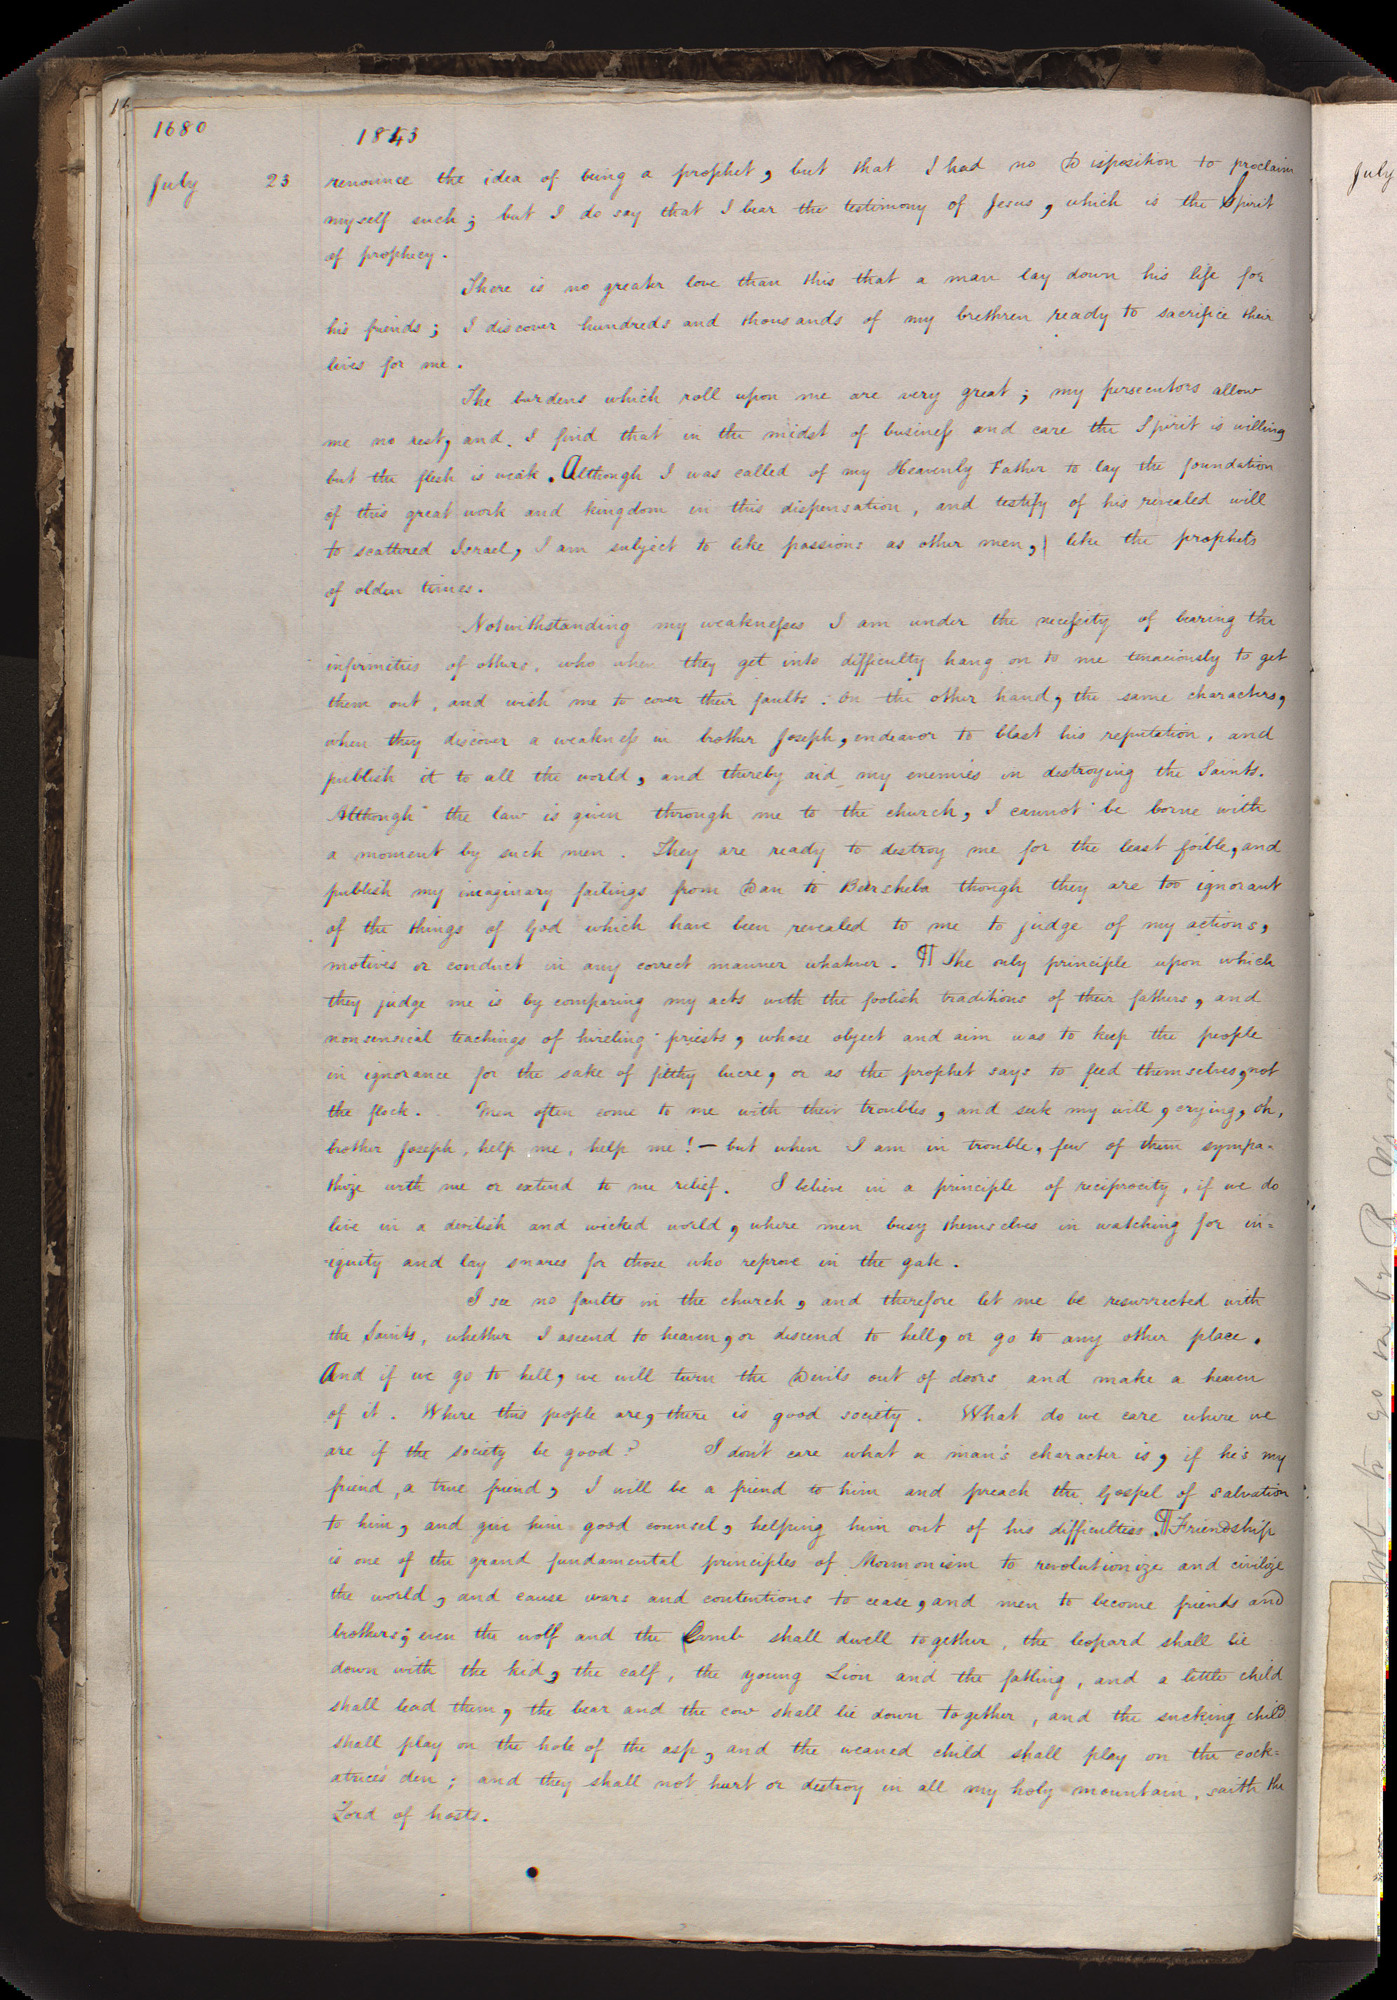 1680
1843
July 23
July
renounce the idea of being a prophet, but that I had no Disposition to proclaim
myself such; but I do say that I bear the testimony of Jesus, which is the Spirit
of prophicy.
There is no greater love than this that a man lay down his life for
his friends; I discover hundreds and thousands of my brethren ready to sacrifice their
lives for me.
The burdens which roll upon me are very great; my persecutors allow
me no rest, and I find that in the midst of business and care the Spirit is willing
but the flesh is weak. Although I was called of my Heavenly Father to lay the foundation
of this great work and kingdom in this dispensation, and testify of his revealed will
to scattered Israel, I am subject to like passions as other men, like the prophets
of olden times.
Notwithstanding my weaknesses I am under the necessity of bearing the
infirmities of others, who when they get into difficulty hang on to me tenaciously to get
them out, and wish me to cover their faults. On the other hand, the same characters,
when they discover a weakness in brother Joseph, endeavor to blast his reputation, and
publish it to all the world, and thereby aid my enemies in destroying the Saints.
Although the law is given through me to the church, I cannot be borne with
a moment by such men. They are ready to destroy me for the least foible, and
publish my imaginary failings from Dan to Beersheba though they are too ignorant
of the things of God which have been revealed to me to judge of my actions,
motives or conduct in any correct manner whatever. ¶ The only principle upon which
they judge me is by comparing my acts with the foolish traditions of their fathers, and
nonsensical teachings of hireling priests, whose object and aim was to keep the people
in ignorance for the sake of filthy lucre, or as the prophet says to feed themselves, not
the flock. Men often come to me with their troubles, and seek my will, crying, oh,
brother Joseph, help me, help me! — but when I am in trouble, few of them sympa-
thize with me or extend to me relief. I believe in a principle of reciprocity, if we do
live in a devilish and wicked world, where men busy themselves in watching for in=
iquity and lay snares for those who reprove in the gate.
I see no faults in the church, and therefore let me be resurrected with
the Saints, whether I ascend to heaven, or descend to hell, or go to any other place.
And if we go to hell, we will turn the Devils out of doors and make a heaven
of it. Where this people are, there is good society. What do we care where we
are if the society be good? I don't care what a man's character is, if he's my
friend, a true friend, I will be a friend to him and preach the Gospel of salvation
to him, and give him good counsel, helping him out of his difficulties. ¶ Friendship
is one of the grand fundamental principles of Mormonism to revolutionize and civilize
the world, and cause wars and contentions to cease, and men to become friends and
brothers; even the wolf and the Lamb shall dwell together, the leopard shall lie
down with the kid, the calf, the young Lion and the fatling, and a little child
shall lead them, the bear and the cow shall lie down together, and the sucking child
shall play on the hole of the asp, and the weaned child shall play on the cock=
atrice's den; and they shall not hurt or destroy in all my holy mountain, saith the
Lord of hosts.